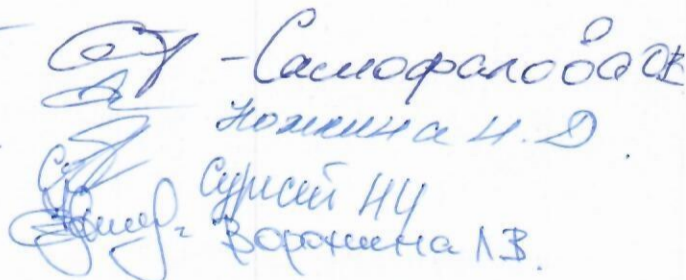 - Самофалова ОВ
Ножкина Н.Д.
Сурсит НЧ
Воронина Л.В.